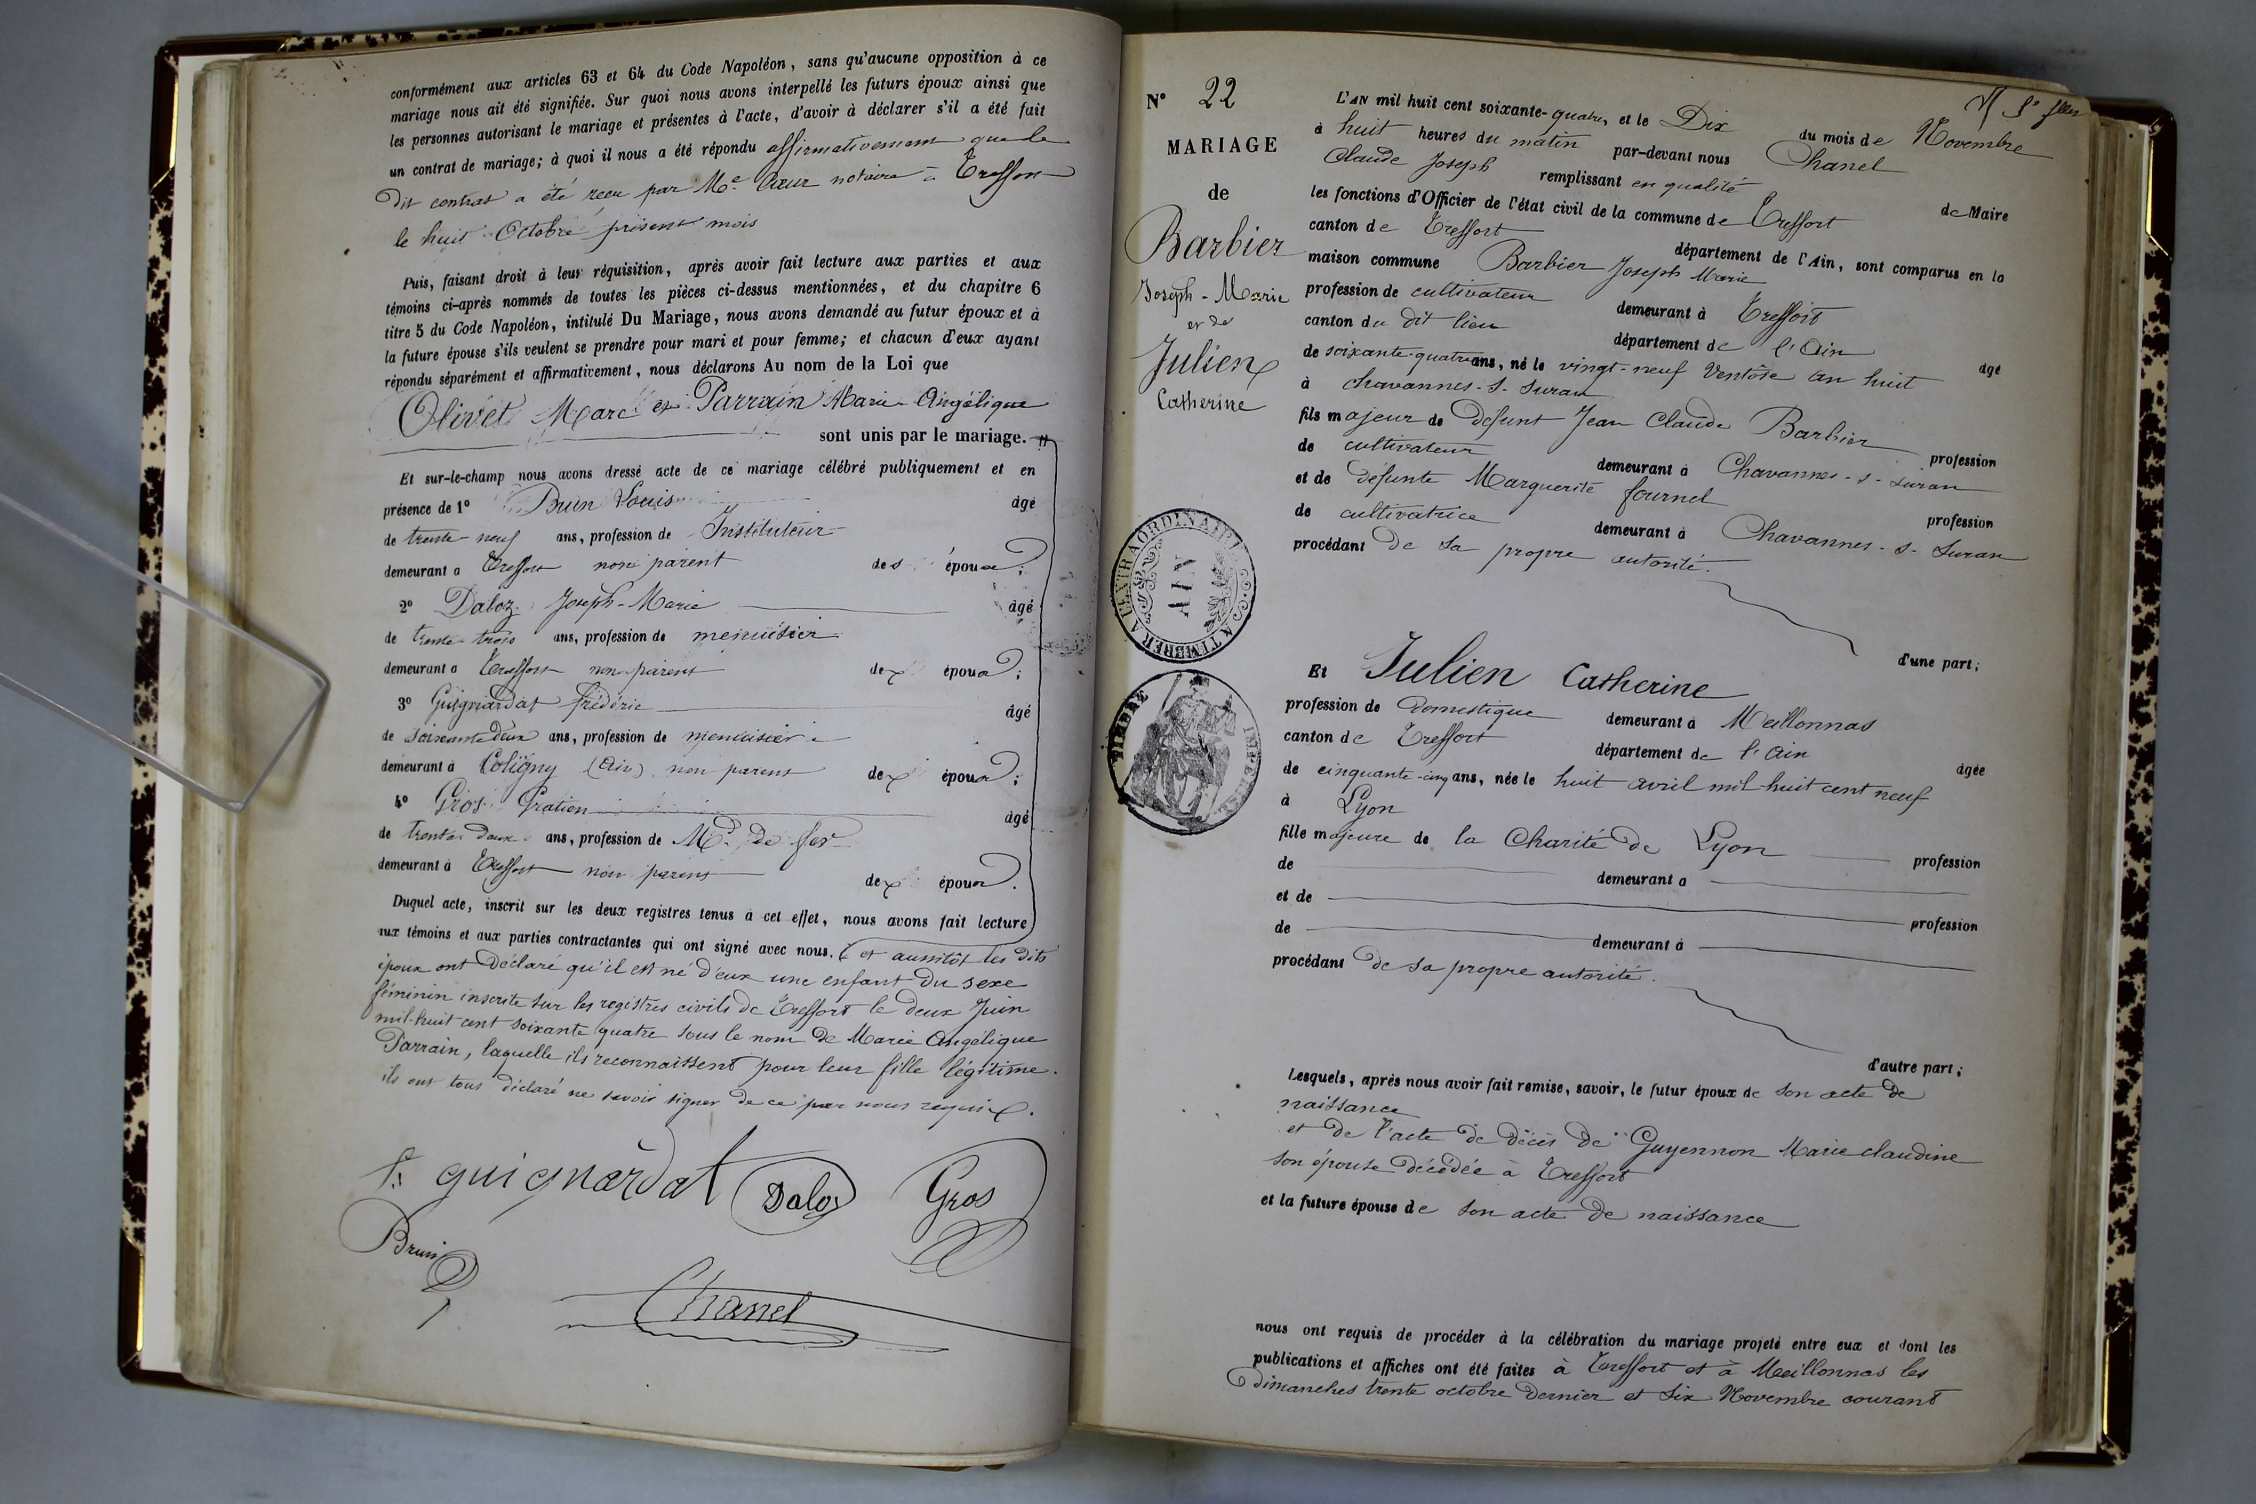 conformément aux articles 63 et 64 du Code Napoléon, sans qu'aucune opposition à ce
mariage nous ait été signifiée. Sur quoi nous avons interpellé les futurs époux ainsi que
les personnes autorisant le mariage et présentes à l'acte, d'avoir à déclarer s'il a été fait
un contrat de mariage; à quoi il nous a été répondu affirmativement que le
dit contrat a été reçu par Me Cœur notaire à Treffort
le huit Octobre présent mois
Puis, faisant droit à leur réquisition, après avoir fait lecture aux parties et aux
témoins ci-après nommés de toutes les pièces ci-dessus mentionnées, et du chapitre 6
titre 5 du Code Napoléon, intitulé Du Mariage, nous avons demandé au futur époux et à
la future épouse s'ils veulent se prendre pour mari et pour femme; et chacun d'eux ayant
répondu séparément et affirmativement, nous déclarons Au nom de la Loi que
Olivet Marc et Parrain Marie Angélique
sont unis par le mariage.
Et sur-le-champ nous avons dressé acte de ce mariage célébré publiquement et en
présence de 1° Brun Louis âgé
de trente-neuf ans, profession de Instituteur
demeurant à Treffort non parent des époux;
2° Daloz Joseph-Marie âgé
de trente-trois ans, profession de menuisier
demeurant à Treffort non parent de époux;
3° Guignardat frédéric âgé
de soixante deux ans, profession de menuisier
demeurant à Coligny (Ain) non parent de époux;
4° Gros Gratien âgé
de trente deux ans, profession de Md de fer
demeurant à Treffort non parent de époux.
Duquel acte, inscrit sur les deux registres tenus à cet effet, nous avons fait lecture
aux témoins et aux parties contractantes qui ont signé avec nous. et aussitôt les dits
époux ont déclaré qu'il est né d'eux une enfant du sexe
féminin inscrite sur les registres civils de Treffort le deux Juin
mil-huit cent soixante quatre sous le nom de Marie Angélique
Parrain, laquelle ils reconnaissent pour leur fille légitime.
ils ont tous déclaré ne savoir signer de ce par nous requis.
f. guignardat Daloz Gros
Brun
Chanel
N° 22
MARIAGE
de
Barbier
Joseph-Marie
et de
Julien
Catherine
EXTRAORDINAIRE
AIN
A TIMBRER A L'
TIMBRE IMPERIAL
L'AN mil huit cent soixante-quatre, et le Dix du mois de Novembre
à huit heures du matin par-devant nous Chanel
Claude Joseph remplissant en qualité de Maire
les fonctions d'Officier de l'état civil de la commune de Treffort
canton de Treffort département de l'Ain, sont comparus en la
maison commune Barbier Joseph Marie
profession de cultivateur demeurant à Treffort
canton du dit lieu département de l'Ain âgé
de soixante-quatre ans, né le vingt-neuf Ventôse an huit
à chavannes-s-suran
fils majeur de Défunt Jean Claude Barbier profession
de cultivateur demeurant à Chavannes-s-suran
et de défunte Marguerite fournel profession
de cultivatrice demeurant à Chavannes-s-Suran
procédant de sa propre autorité.
d'une part;
Et Julien Catherine
profession de domestique demeurant à Meillonnas
canton de Treffort département de l'ain âgée
de cinquante-cinq ans, née le huit avril mil huit cent neuf
à Lyon
fille majeure de la Charité de Lyon profession
de demeurant à
et de profession
de demeurant à
procédant de sa propre autorité.
d'autre part;
Lesquels, après nous avoir fait remise, savoir, le futur époux de son acte de
naissance
et de l'acte de décès de Guyennon Marie claudine
son épouse décédée à Treffort
et la future épouse de son acte de naissance
nous ont requis de procéder à la célébration du mariage projeté entre eux et dont les
publications et affiches ont été faites à Treffort et à Meillonnas les
dimanches trente octobre dernier et six Novembre courant